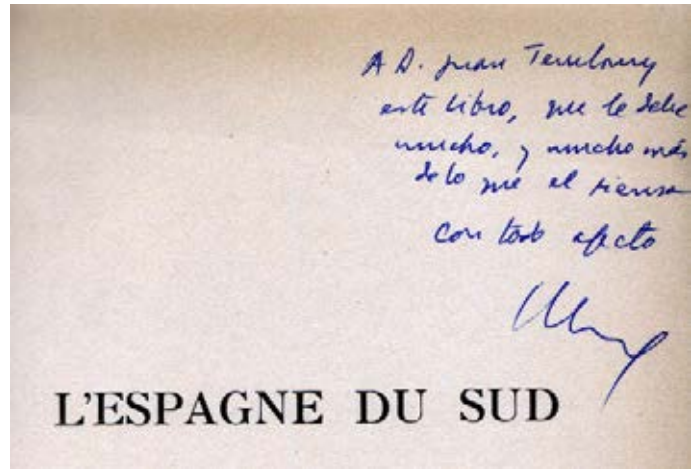 A D. Juan Temboury
este libro, que le debe
mucho, y mucho más
de lo que el piensa
con todo afecto
L'ESPAGNE DU SUD